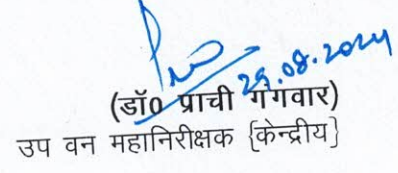 29.08.2024
(डॉ0 प्राची गंगवार)
उप वन महानिरीक्षक {केन्द्रीय}